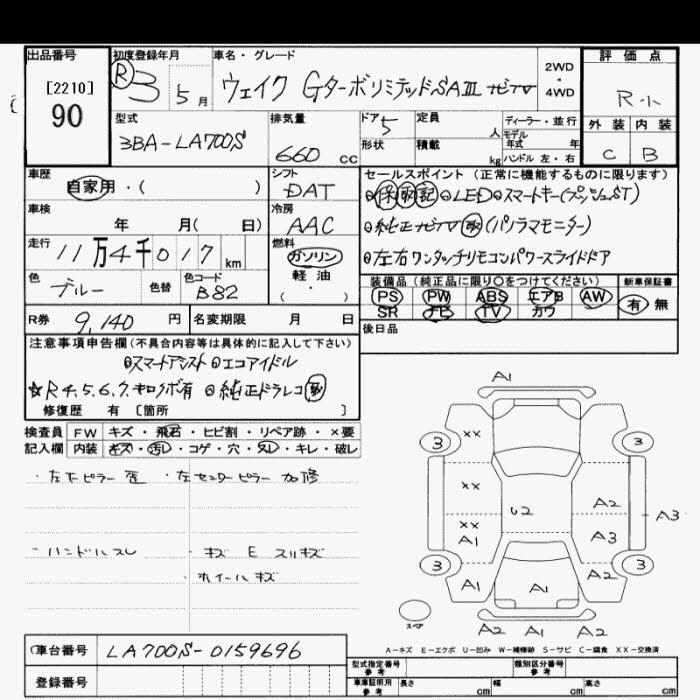 出品番号
[2210]
90
初度登録年月
R 3 5 月
車名・グレード
ウェイク GターボリミテッドSAⅢ ナビTV
2WD
・
4WD
評価点
R-小
外装 内装
C B
型式
3BA-LA700S
排気量
660 cc
ドア 5
形状
定員 人
積載 kg
ディーラー・並行
モデル
年式 年
ハンドル 左・右
車歴
自家用・( )
シフト
DAT
車検
年 月( 日)
冷房
AAC
走行
11万4千017 km
燃料
ガソリン
軽油
( ・ )
色
ブルー
色替
色コード
B82
R券 9,140 円
名変期限 月 日
セールスポイント(正常に機能するものに限ります)
⊙保取記⊙LED⊙スマートキー(プッシュST)
⊙純正ナビTV取(パノラマモニター)
⊙左右ワンタッチリモコンパワースライドドア
装備品(純正品に限り○をつけてください)
新車保証書
PS PW ABS エアB AW
SR ナビ TV カワ
有 無
後日品
注意事項申告欄(不具合内容等は具体的に記入して下さい)
⊙スマートアシスト ⊙エコアイドル
☆R4.5.6.7.キロクボ有 ⊙純正ドラレコ取
修復歴 有 [箇所 ]
検査員
記入欄
FW キズ・飛石・ヒビ割・リペア跡・×要
内装 キズ・汚レ・コゲ・穴・スレ・キレ・破レ
・左下ピラー歪 ・左センターピラー加修
・ハンドルスレ ・キズ E スリキズ
・ホイールキズ
A1
3 3
XX
XX
XX
A1
U2
A2
A3
A3
3 3
A1
A1
A2
スペア
A2 A1 A2
A-キズ E-エクボ U-凹み W-補修跡 S-サビ C-腐食 XX-交換済
車台番号 LA700S-0159696
登録番号
型式指定番号
参考
類別区分番号
参考
車庫証明用
参考
長さ cm 幅 cm 高さ cm